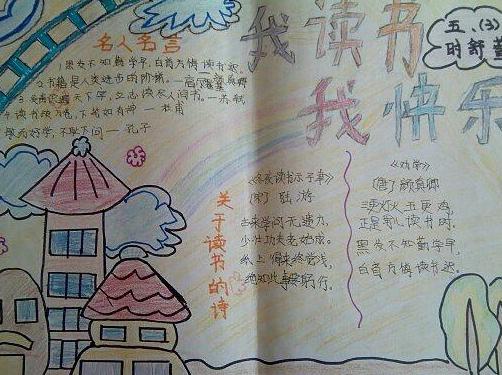 我读书
我快乐
五、(3)
时舒萱
名人名言
黑发不知勤学早,白首方悔读书迟。
2.书籍是人类进步的阶梯。—高尔基
颜真卿
3.发奋识遍天下字,立志读尽人间书。—苏轼
4.读书破万卷,下笔如有神—杜甫
敏而好学,不耻下问—孔子
关于读书的诗
《冬夜读书示子聿》
(宋)陆游
古来学问无遗力,
少壮功夫老始成。
纸上得来终觉浅,
绝知此事要躬行。
《劝学》
(唐)颜真卿
三更灯火五更鸡
正是男儿读书时。
黑发不知勤学早,
白首方悔读书迟。